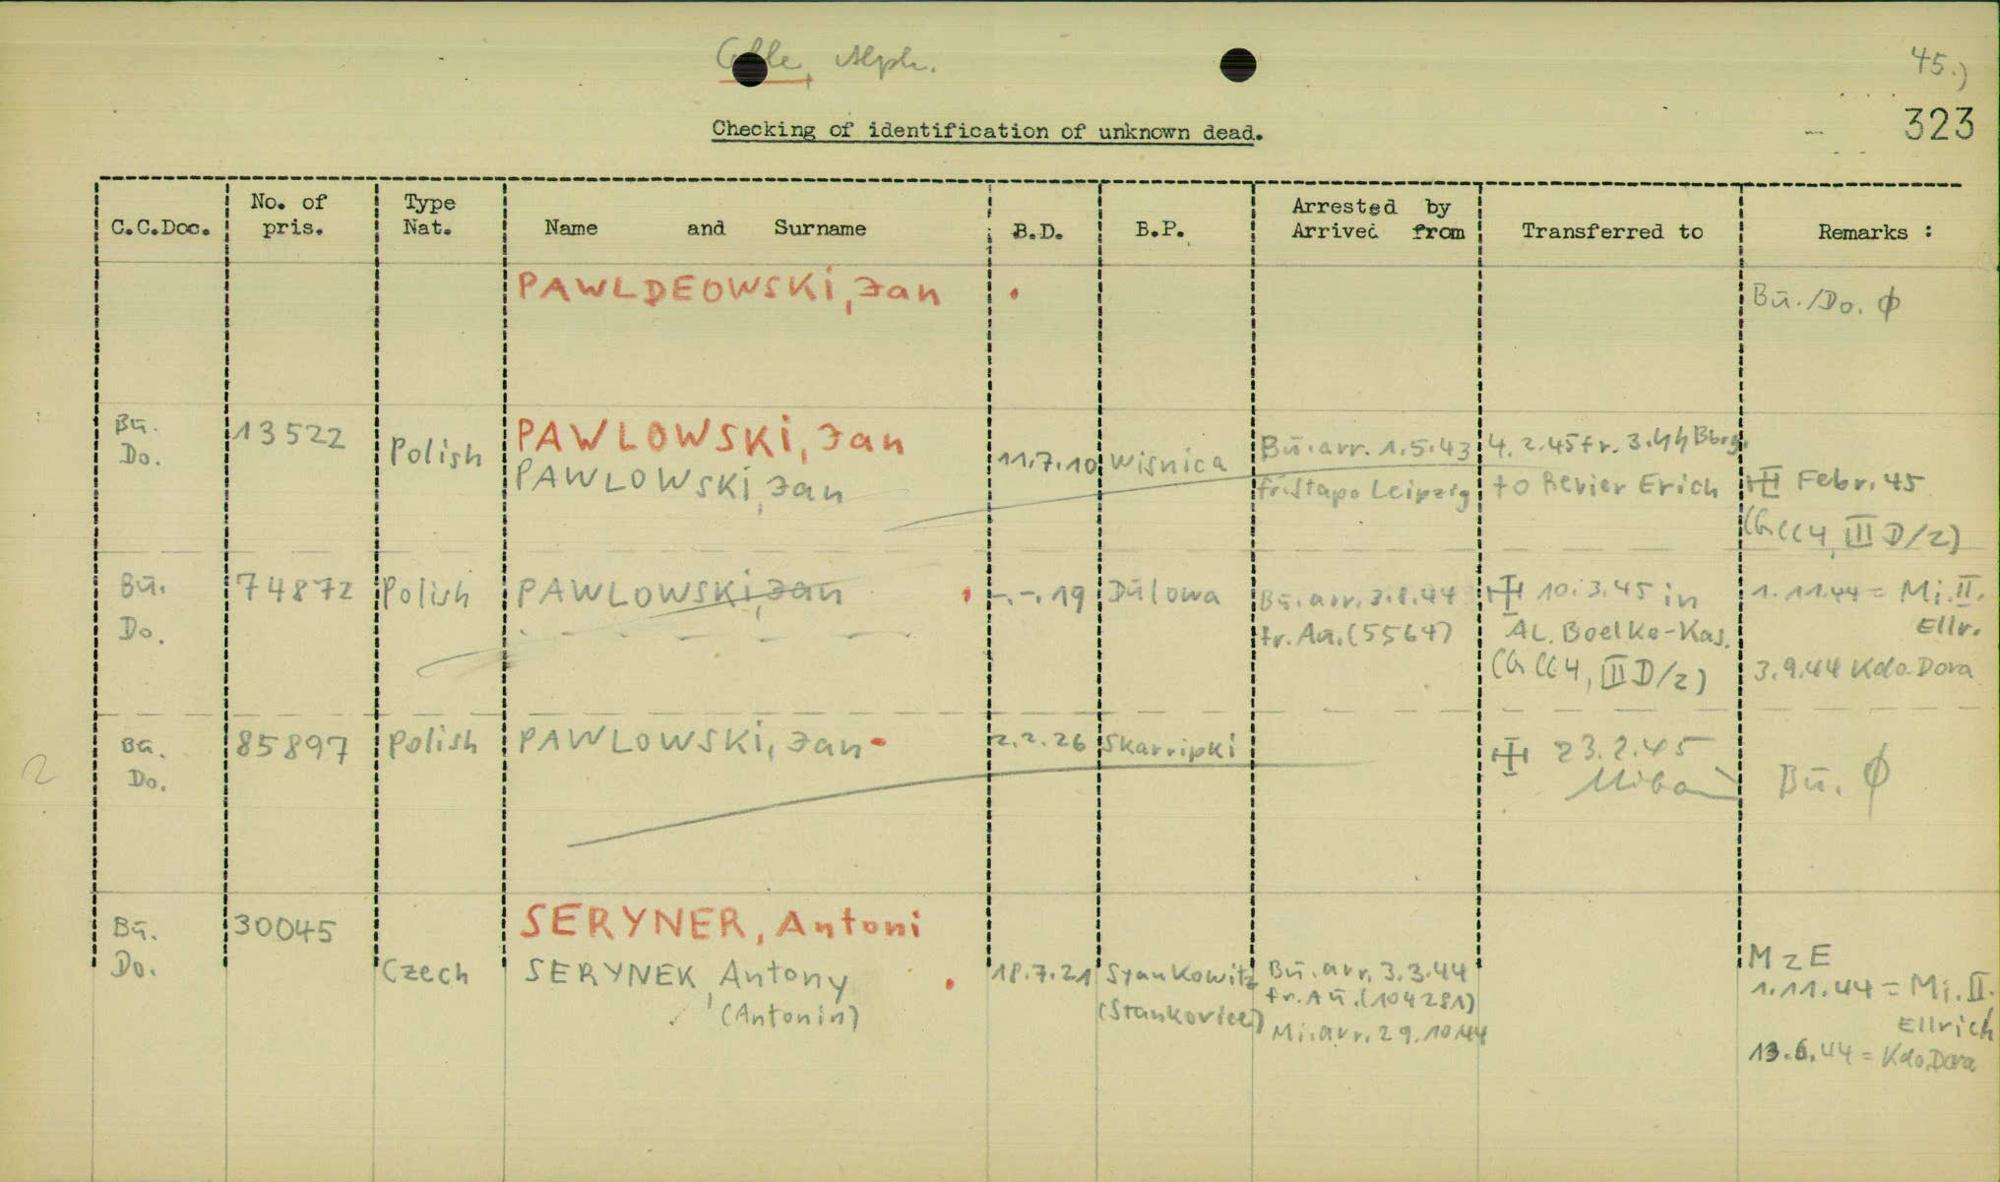 Alph.
45.)
323
Checking of identification of unknown dead.
C.C.Doc. No. of pris. Type Nat. Name and Surname B.D. B.P. Arrested by Arrived from Transferred to Remarks :
PAWLDEOWSKi, Jan Bū./Do. ϕ
Bū. 13522 PAWLOWSKi, Jan Bū. arr. 1.5.43 4.2.45 fr.
Do. Polish PAWLOWSKi, Jan 11.7.10 Wisnica fr. Stapo Leipzig to Revier Erich Febr. 45
Bū. 74872 Polish PAWLOWSKi, Jan -.-.19 Dūlowa Bū. arr. 3.8.44 10.3.45 in 1.11.44 = Mi. II.
Do. fr. Aū. (5564) AL. Boelke-Kas. Ellr.
3.9.44 Kdo. Dora
2
Bū. 85897 Polish PAWLOWSKi, Jan 2.2.26 Skarripki 23.2.45
Do. Bū. ϕ
Bū. 30045 SERYNER, Antoni
Do. Czech SERYNEK, Antony 18.7.21 Syankowitz Bū. arr. 3.3.44 MzE
(Antonin) (Stankovice) fr. Aū. (104281) 1.11.44 = Mi. II.
Mi. arr. 29.10.44 Ellrich
13.6.44 = Kdo. Dora